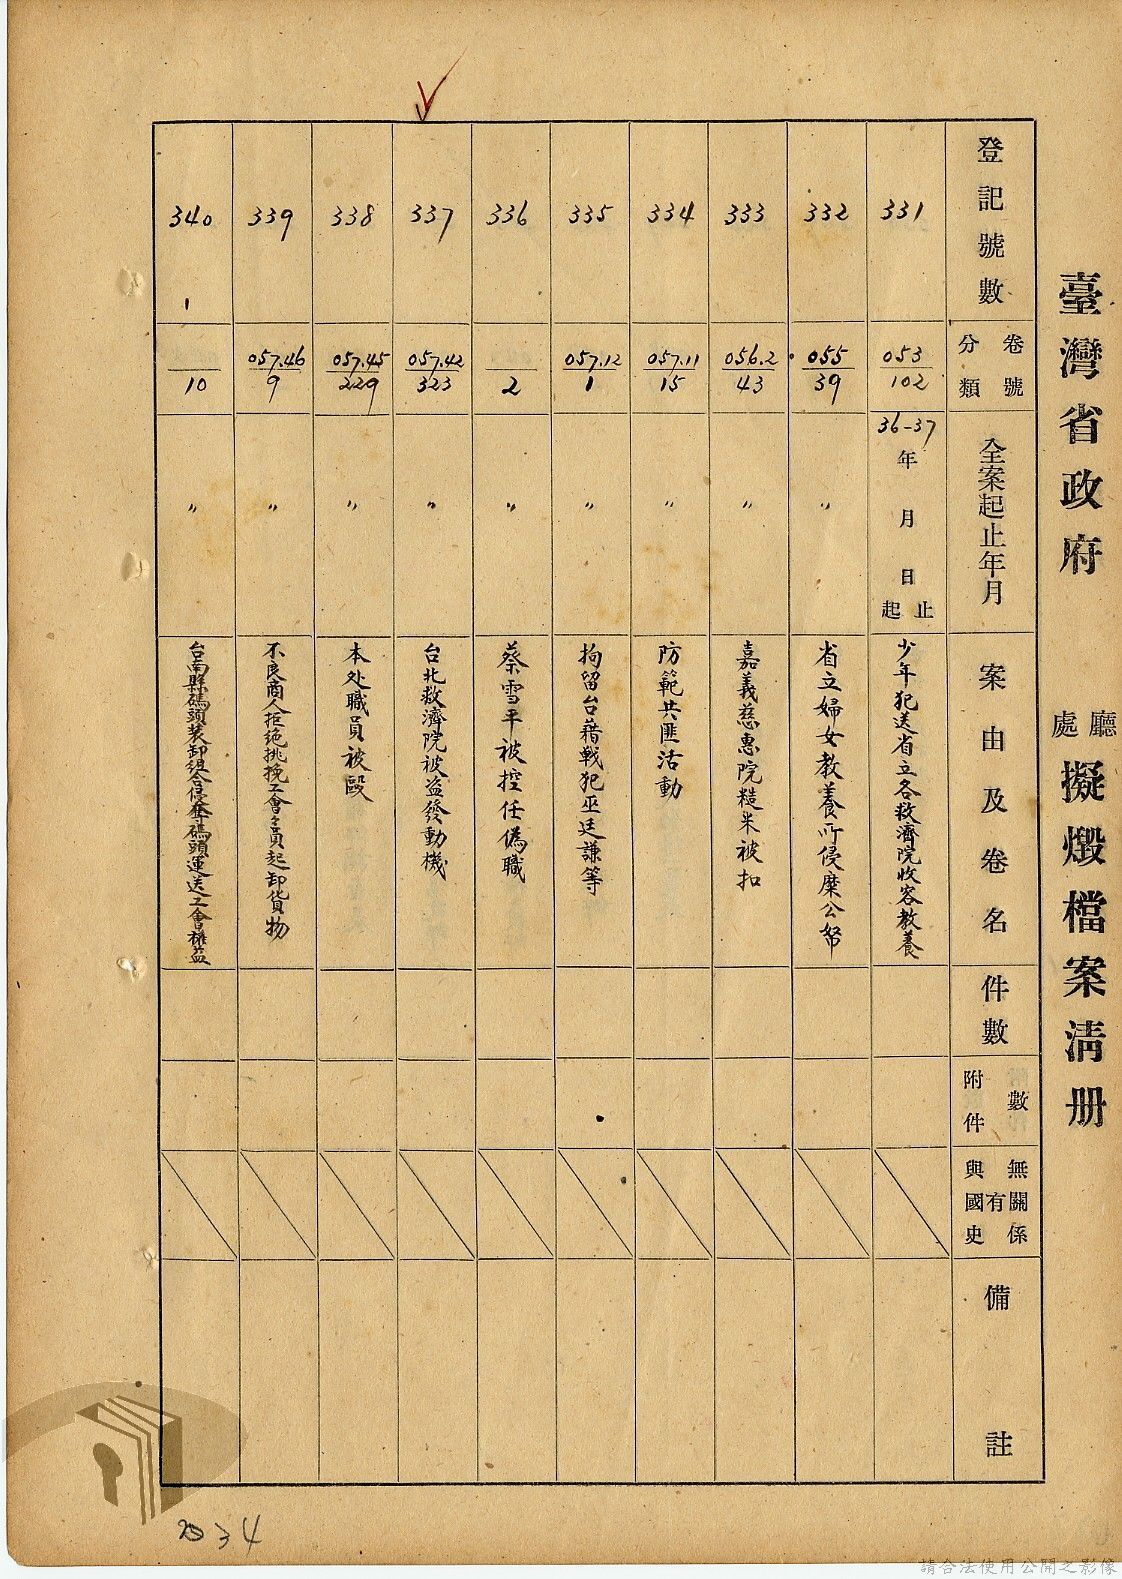 臺灣省政府 廳處 擬燬檔案清册
登記號數 分類卷號 全案起止年月 案由及卷名 件數 附件數 與國史有無關係 備註
331 053/102 36-37年 月 日 起止 少年犯送省立各救濟院收容教養
332 055/39 〃 省立婦女教養所侵糜公帑
333 056.2/43 〃 嘉義慈惠院糙米被扣
334 057.11/15 〃 防範共匪活動
335 057.12/1 〃 拘留台藉戰犯巫廷謙等
336 /2 〃 蔡雪平被控任偽職
337 057.42/323 〃 台北救濟院被盜發動機
338 057.45/229 〃 本处職員被毆
339 057.46/9 〃 不良商人拒绝挑挽工會々員起卸貨物
340 /10 〃 台南縣碼頭装卸組合侵奪碼頭運送工會權益
34
請合法使用公開之影像